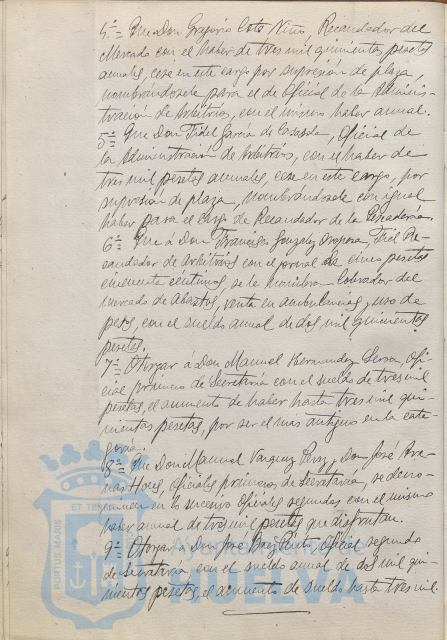 4.ª = Que Don Gregorio Coto Niño, Recaudador del
Mercado con el haber de tres mil quinientas pesetas
anuales, cese en este cargo por supresión de plaza,
nombrándosele para el de Oficial de la Adminis-
tración de Arbitrios, con el mismo haber anual.
5.ª = Que Don Fidel García de Casasola, Oficial de
la Administración de Arbitrios, con el haber de
tres mil pesetas anuales, cese en este cargo, por
supresión de plaza, nombrándosele con igual
haber para el cargo de Recaudador de la
6.ª = Que á Don Francisco González Oropesa, Fiel Re-
caudador de arbitrios con el jornal de cinco pesetas
cincuenta céntimos, se le nombra Cobrador del
mercado de Abastos, venta en ambulancias, uso de
pesos, con el sueldo anual de dos mil quinientas
pesetas.
7.ª = Otorgar á Don Manuel Hernandez Serra, Ofi-
cial primero de Secretaría con el sueldo de tres mil
pesetas, el aumento de haber hasta tres mil qui-
nientas pesetas, por ser el más antiguo en la cate-
goría.
8.ª = Que Don Manuel Vazquez Perez y Don José Are-
nas Hoces, oficiales primeros de Secretaría, se deno-
minen en lo sucesivo Oficiales segundos con el mismo
haber anual de tres mil pesetas que disfrutan.
9.ª = Otorgar a Don José Pinto, Oficial segundo
de Secretaría, con el sueldo anual de dos mil qui-
nientas pesetas, el aumento de sueldo hasta tres mil.
PORTUS MARIS
ET TERRAE
Ayuntamiento de
HUELVA